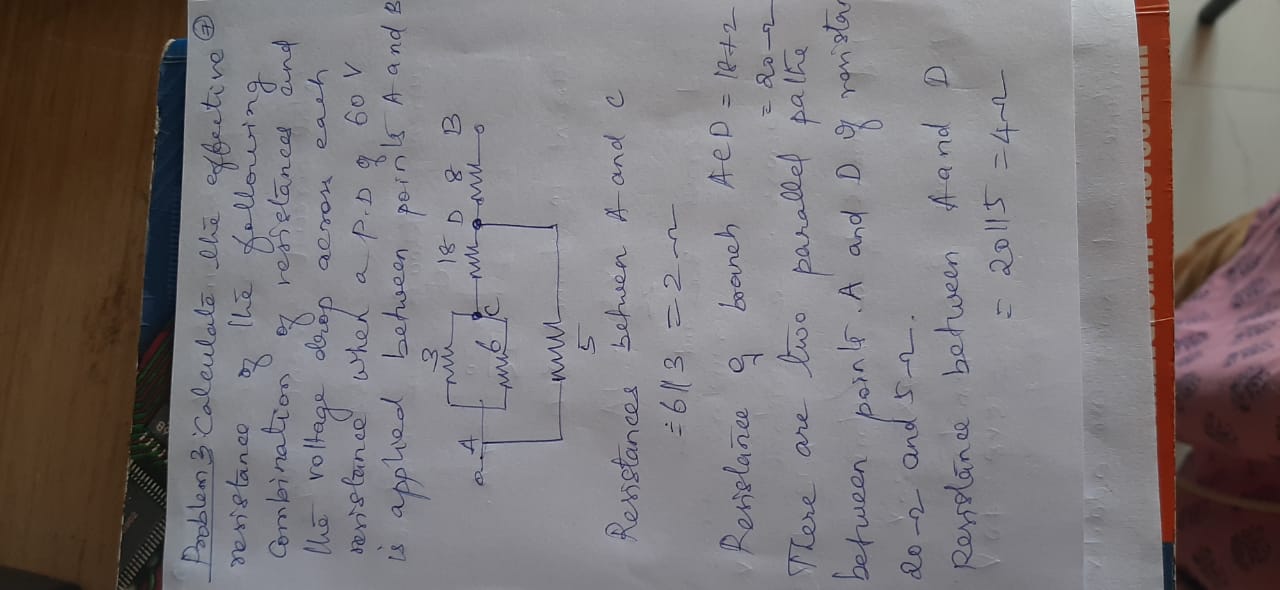 Problem 3: Calculate the effective ⑦
resistance of the following
Combination of resistances and
the voltage drop across each
resistance when a P.D of 60 V
is applied between points A and B
A 3 6 C 18 D 8 B
5
Resistances between A and C
= 6||3 = 2 Ω
Resistance of branch ACD = 18+2
= 20 Ω
There are two parallel paths
between points A and D of
20 Ω and 5 Ω.
Resistance between A and D
= 20||5 = 4 Ω